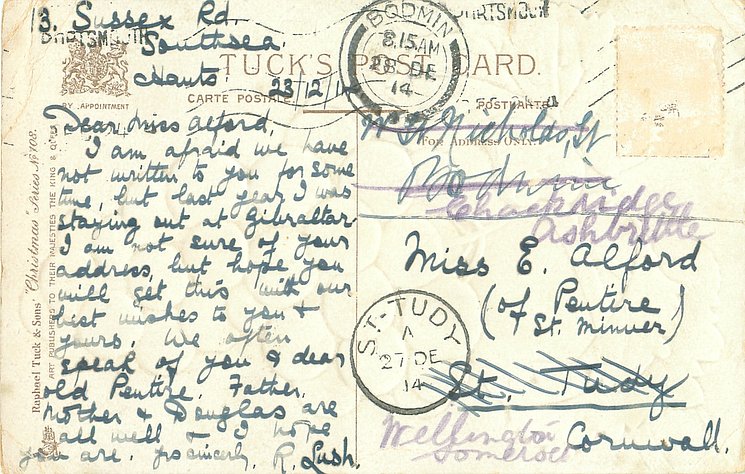 13. Sussex Rd.
Southsea.
Hants
23/12/14
TUCK'S POST CARD.
CARTE POSTALE
POSTKARTE
BY APPOINTMENT
FOR ADDRESS ONLY
BODMIN
8.15 AM
28 DE
14
Dear Miss Alford,
I am afraid we have
not written to you for some
time, but last year I was
staying out at Gibraltar
I am not sure of your
address, but hope you
will get this with our
best wishes to you &
yours. We often
speak of you & dear
old Pentire. Father,
Mother & Douglas are
all well & I hope
you are. Yrs sincerely, R. Lush.
St Nicholas, St
Bodmin
Ashbrittle
Miss E. Alford
(of Pentire
St. Minver)
St. Tudy
Cornwall.
Wellington
Somerset
ST. TUDY
A
27 DE
14
Raphael Tuck & Sons' "Christmas" Series No
ART PUBLISHERS TO THEIR MAJESTIES THE KING & QUEEN